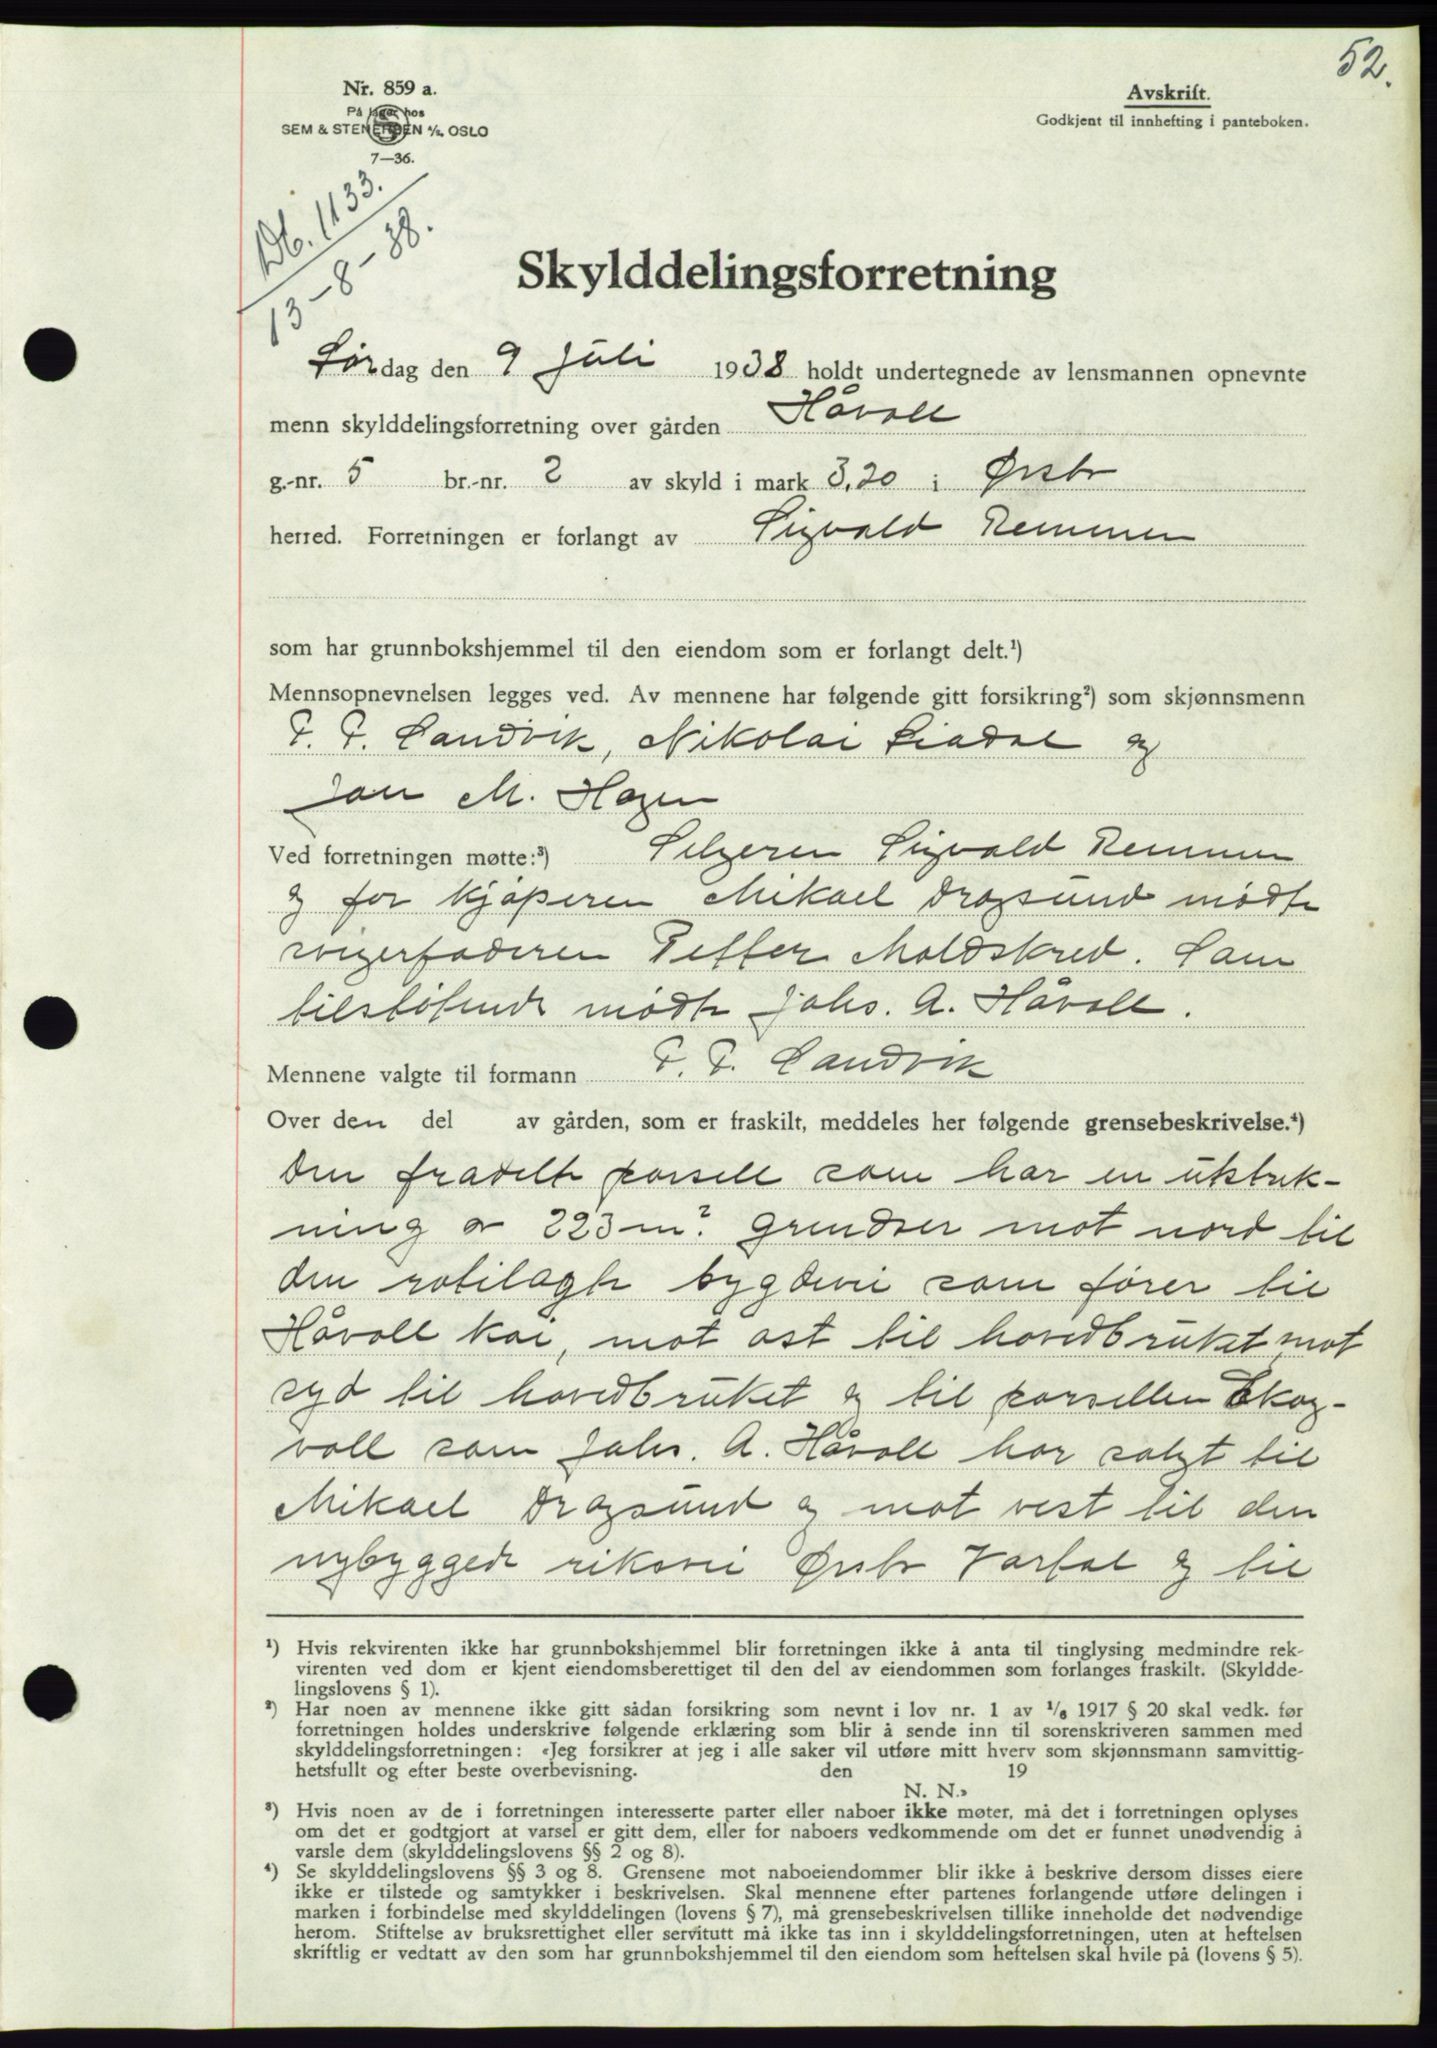 52.
Nr. 859 a.
På lager hos
SEM & STENERSEN A/S. OSLO
7—36.
Avskrift.
Godkjent til innhefting i panteboken.
Db. 1133.
13-8-38.
Skylddelingsforretning
Lørdag den 9 Juli 1938 holdt undertegnede av lensmannen opnevnte
menn skylddelingsforretning over gården Håvoll
g.-nr. 5 br.-nr. 2 av skyld i mark 3,20 i Ørsta
herred. Forretningen er forlangt av Sigvald Remmen
som har grunnbokshjemmel til den eiendom som er forlangt delt.¹)
Mennsopnevnelsen legges ved. Av mennene har følgende gitt forsikring²) som skjønnsmenn
P. P. Sandvik, Nikolai Liadal og
Jon M. Hagen
Ved forretningen møtte:³) Selgeren Sigvald Remmen
og for kjøperen Mikael Dragsund mødte
svigerfaderen Petter Moldskred. Som
tilstøtende mødte Johs. A. Håvoll.
Mennene valgte til formann P. P. Sandvik
Over den del av gården, som er fraskilt, meddeles her følgende grensebeskrivelse.⁴)
Den fradelte parsell som har en utstrek-
ning av 223 m². grendser mot nord til
den rotilagte bygdevei som fører til
Håvoll kai, mot øst til hovedbruket, mot
syd til hovedbruket og til parsellen Skog-
voll som Johs. A. Håvoll har solgt til
Mikael Dragsund og mot vest til den
nybyggede riksvei Ørsta Vartal og til
¹) Hvis rekvirenten ikke har grunnbokshjemmel blir forretningen ikke å anta til tinglysing medmindre rek-
virenten ved dom er kjent eiendomsberettiget til den del av eiendommen som forlanges fraskilt. (Skyldde-
lingslovens § 1).
²) Har noen av mennene ikke gitt sådan forsikring som nevnt i lov nr. 1 av 1/6 1917 § 20 skal vedk. før
forretningen holdes underskrive følgende erklæring som blir å sende inn til sorenskriveren sammen med
skylddelingsforretningen: «Jeg forsikrer at jeg i alle saker vil utføre mitt hverv som skjønnsmann samvittig-
hetsfullt og efter beste overbevisning. den 19
N. N.»
³) Hvis noen av de i forretningen interesserte parter eller naboer ikke møter, må det i forretningen oplyses
om det er godtgjort at varsel er gitt dem, eller for naboers vedkommende om det er funnet unødvendig å
varsle dem (skylddelingslovens §§ 2 og 8).
⁴) Se skylddelingslovens §§ 3 og 8. Grensene mot naboeiendommer blir ikke å beskrive dersom disses eiere
ikke er tilstede og samtykker i beskrivelsen. Skal mennene efter partenes forlangende utføre delingen i
marken i forbindelse med skylddelingen (lovens § 7), må grensebeskrivelsen tillike inneholde det nødvendige
herom. Stiftelse av bruksrettighet eller servitutt må ikke tas inn i skylddelingsforretningen, uten at heftelsen
skriftlig er vedtatt av den som har grunnbokshjemmel til den eiendom som heftelsen skal hvile på (lovens § 5).